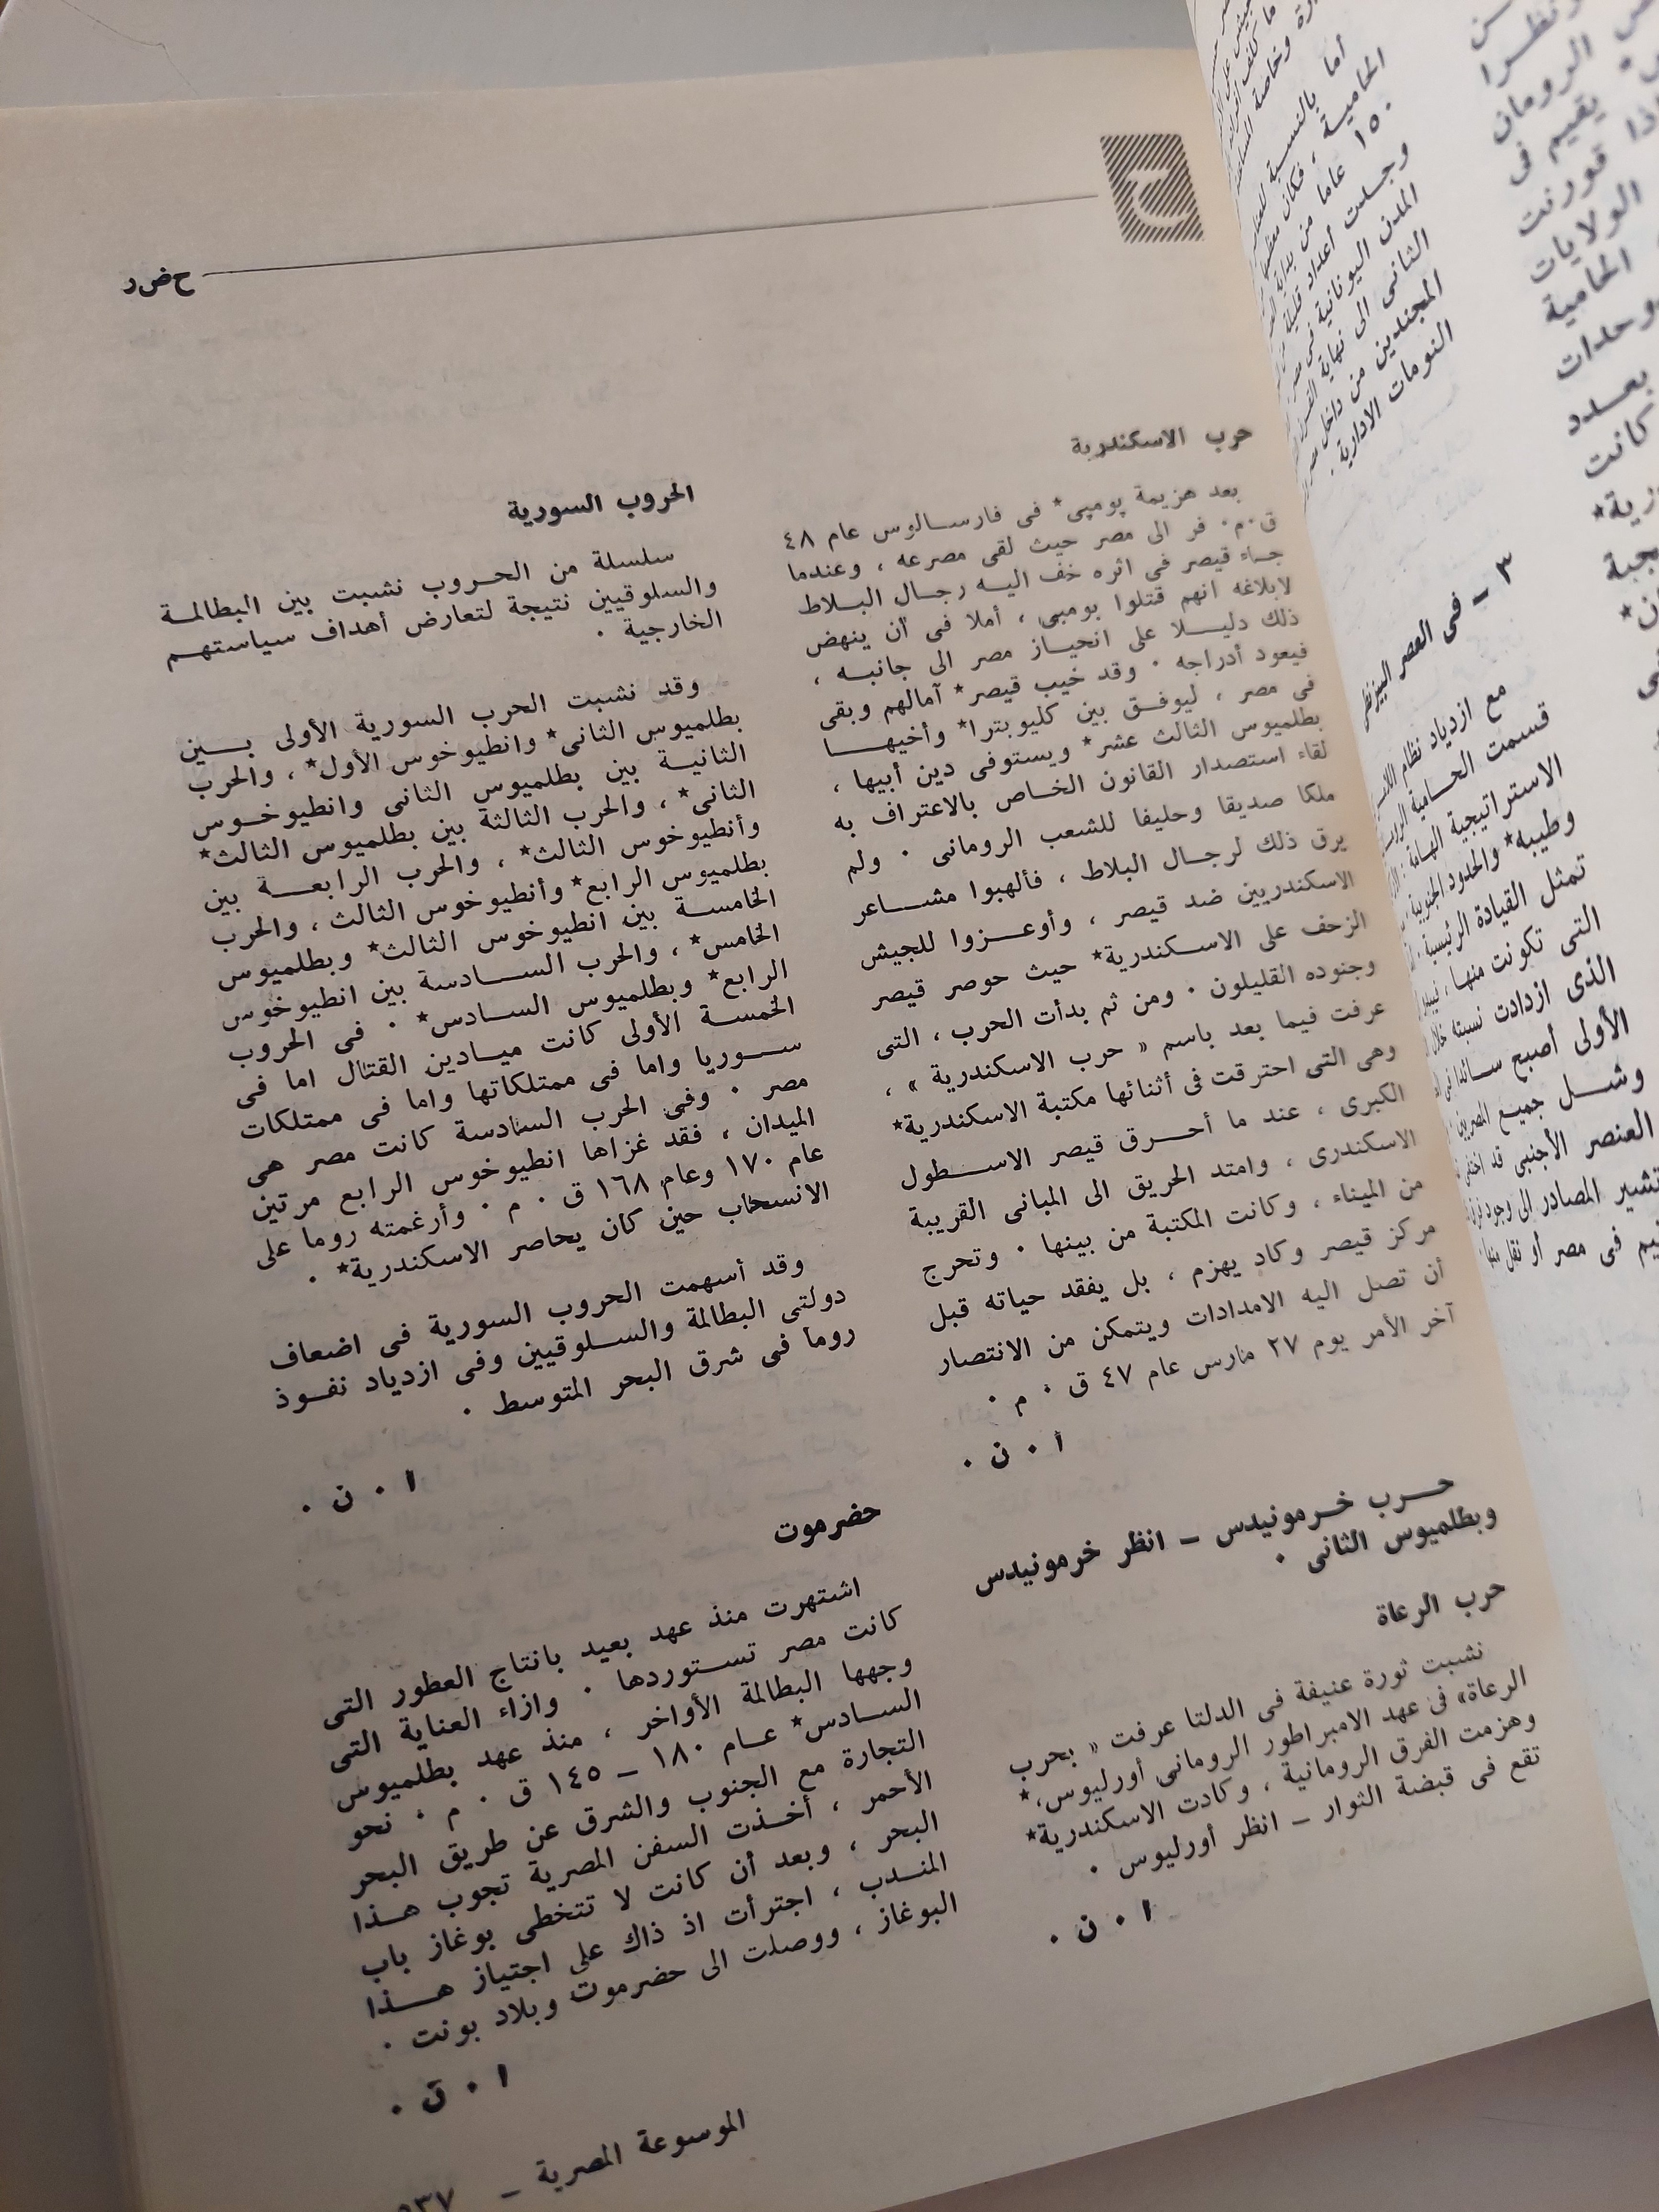 ح ض ر
حرب الاسكندرية
بعد هزيمة پومپى* فى فارســالوس عام ٤٨
ق٠م٠ فر الى مصر حيث لقى مصرعه ، وعندما
جــاء قيصر فى اثره خف اليــه رجــال البــلاط
لابلاغه انهم قتلوا بومبى ، أملا فى أن ينهض
ذلك دليــلا على انحيــاز مصر الى جانبــه ،
فيعود أدراجه ٠ وقد خيب قيصر* آمالهم وبقى
فى مصر ، ليوفــق بين كليوبترا* وأخيهــا
بطلميوس الثالث عشر* ويستوفى دين أبيها ،
لقاء استصدار القانون الخــاص بالاعتراف به
ملكا صديقا وحليفا للشعب الرومانى ٠ ولم
يرق ذلك لرجــال البلاط ، فألهبوا مشــاعر
الاسكندريين ضد قيصر ، وأوعــزوا للجيش
الزحف على الاســكندرية* حيث حوصر قيصر
وجنوده القليلون ٠ ومن ثم بدأت الحرب ، التى
عرفت فيما بعد باسم « حرب الاسكندرية » ،
وهى التى احترقت فى أثنائها مكتبة الاسكندرية*
الكبرى ، عند ما أحــرق قيصر الاســطول
الاسكندرى ، وامتد الحريق الى المبانى القريبة
من الميناء ، وكانت المكتبة من بينها ٠ وتحرج
مركز قيصر وكاد يهزم ، بل يفقد حياته قبل
أن تصل اليه الامدادات ويتمكن من الانتصار
آخر الأمر يوم ٢٧ مارس عام ٤٧ ق ٠ م ٠
أ ٠ ن ٠
حــرب خــرمونيدس – انظر خرمونيدس
وبطلميوس الثانى ٠
حرب الرعاة
نشبت ثورة عنيفة فى الدلتا عرفت « بحرب
الرعاة» فى عهد الامبراطور الرومانى أورليوس،*
وهزمت الفرق الرومانية ، وكادت الاسكندرية*
تقع فى قبضة الثوار – انظر أورليوس ٠
ا ٠ ن ٠
الحروب السورية
سلسلة من الحــروب نشبت بين البطالمــة
والسلوقيين نتيجة لتعارض أهداف سياستهــم
الخارجية ٠
وقد نشبت الحرب السورية الأولى بــين
بطلميوس الثانى* وانطيوخوس الأول* ، والحرب
الثانيــة بين بطلميوس الثانى وانطيوخــوس
الثانى* ، والحرب الثالثة بين بطلميوس الثالث*
وأنطيوخوس الثالث* ، والحرب الرابعــة بين
بطلميوس الرابع* وأنطيوخوس الثالث ، والحرب
الخامســة بين انطيوخوس الثالث* وبطلميوس
الخامس* ، والحرب الســادسة بين انطيوخوس
الرابع* وبطلميوس الســادس* ٠ فى الحروب
الخمســة الأولى كانت ميــادين القتال اما فى
ســوريا واما فى ممتلكاتها واما فى ممتلكات
مصر ٠ وفى الحرب السادسة كانت مصر هى
الميدان ، فقد غزاها انطيوخوس الرابع مرتين
عام ١٧٠ وعام ١٦٨ ق ٠ م ٠ وأرغمته روما على
الانسحاب حين كان يحاصر الاسكندرية* ٠
وقد أسهمت الحروب السورية فى اضعاف
دولتى البطالمة والســلوقيين وفى ازدياد نفــوذ
روما فى شرق البحر المتوسط ٠
ا ٠ ن ٠
حضرموت
اشتهرت منذ عهد بعيد بانتاج العطور التى
كانت مصر تســتوردها ٠ وازاء العناية التى
وجهها البطالمة الأواخر ، منذ عهد بطلميوس
الســادس* عــام ١٨٠ – ١٤٥ ق ٠ م ٠ نحو
التجارة مع الجنوب والشرق عن طريق البحر
الأحمر ، أخــذت السفن المصرية تجوب هــذا
البحر ، وبعد أن كانت لا تتخطى بوغاز باب
المنــدب ، اجترأت اذ ذاك على اجتياز هــذا
البوغاز ، ووصلت الى حضرموت وبلاد بونت ٠
ا ٠ ن ٠
الموسوعة المصرية –
أما بالنسبة
الحاميــة ، فكان
١٥٠ عاما من بداية
وجــلت أعداد قليلة
المدن اليونانية فى مصر
الثانى الى نهاية
المجندين من داخل مصر
النومات الادارية ٠
٣ – فى العصر البيزنطى
مع ازدياد نظام
قسمت الحــامية
الاستراتيجية الهــامة
وطيبه* والحدود الجنوبية
تمثل القيادة الرئيسية
التى تكونت منهــا ،
الذى ازدادت نسبته خلال
الأولى أصبح ســائدا
وشــل جميــع المصريين
العنصر الأجنبى قد
تشير المصادر الى وجود
فى مصر أو نقل منها
ونظــرا
الرومان
يقيم فى
قورنت
الولايات
الحامية
وحدات
بعــدد
كانت